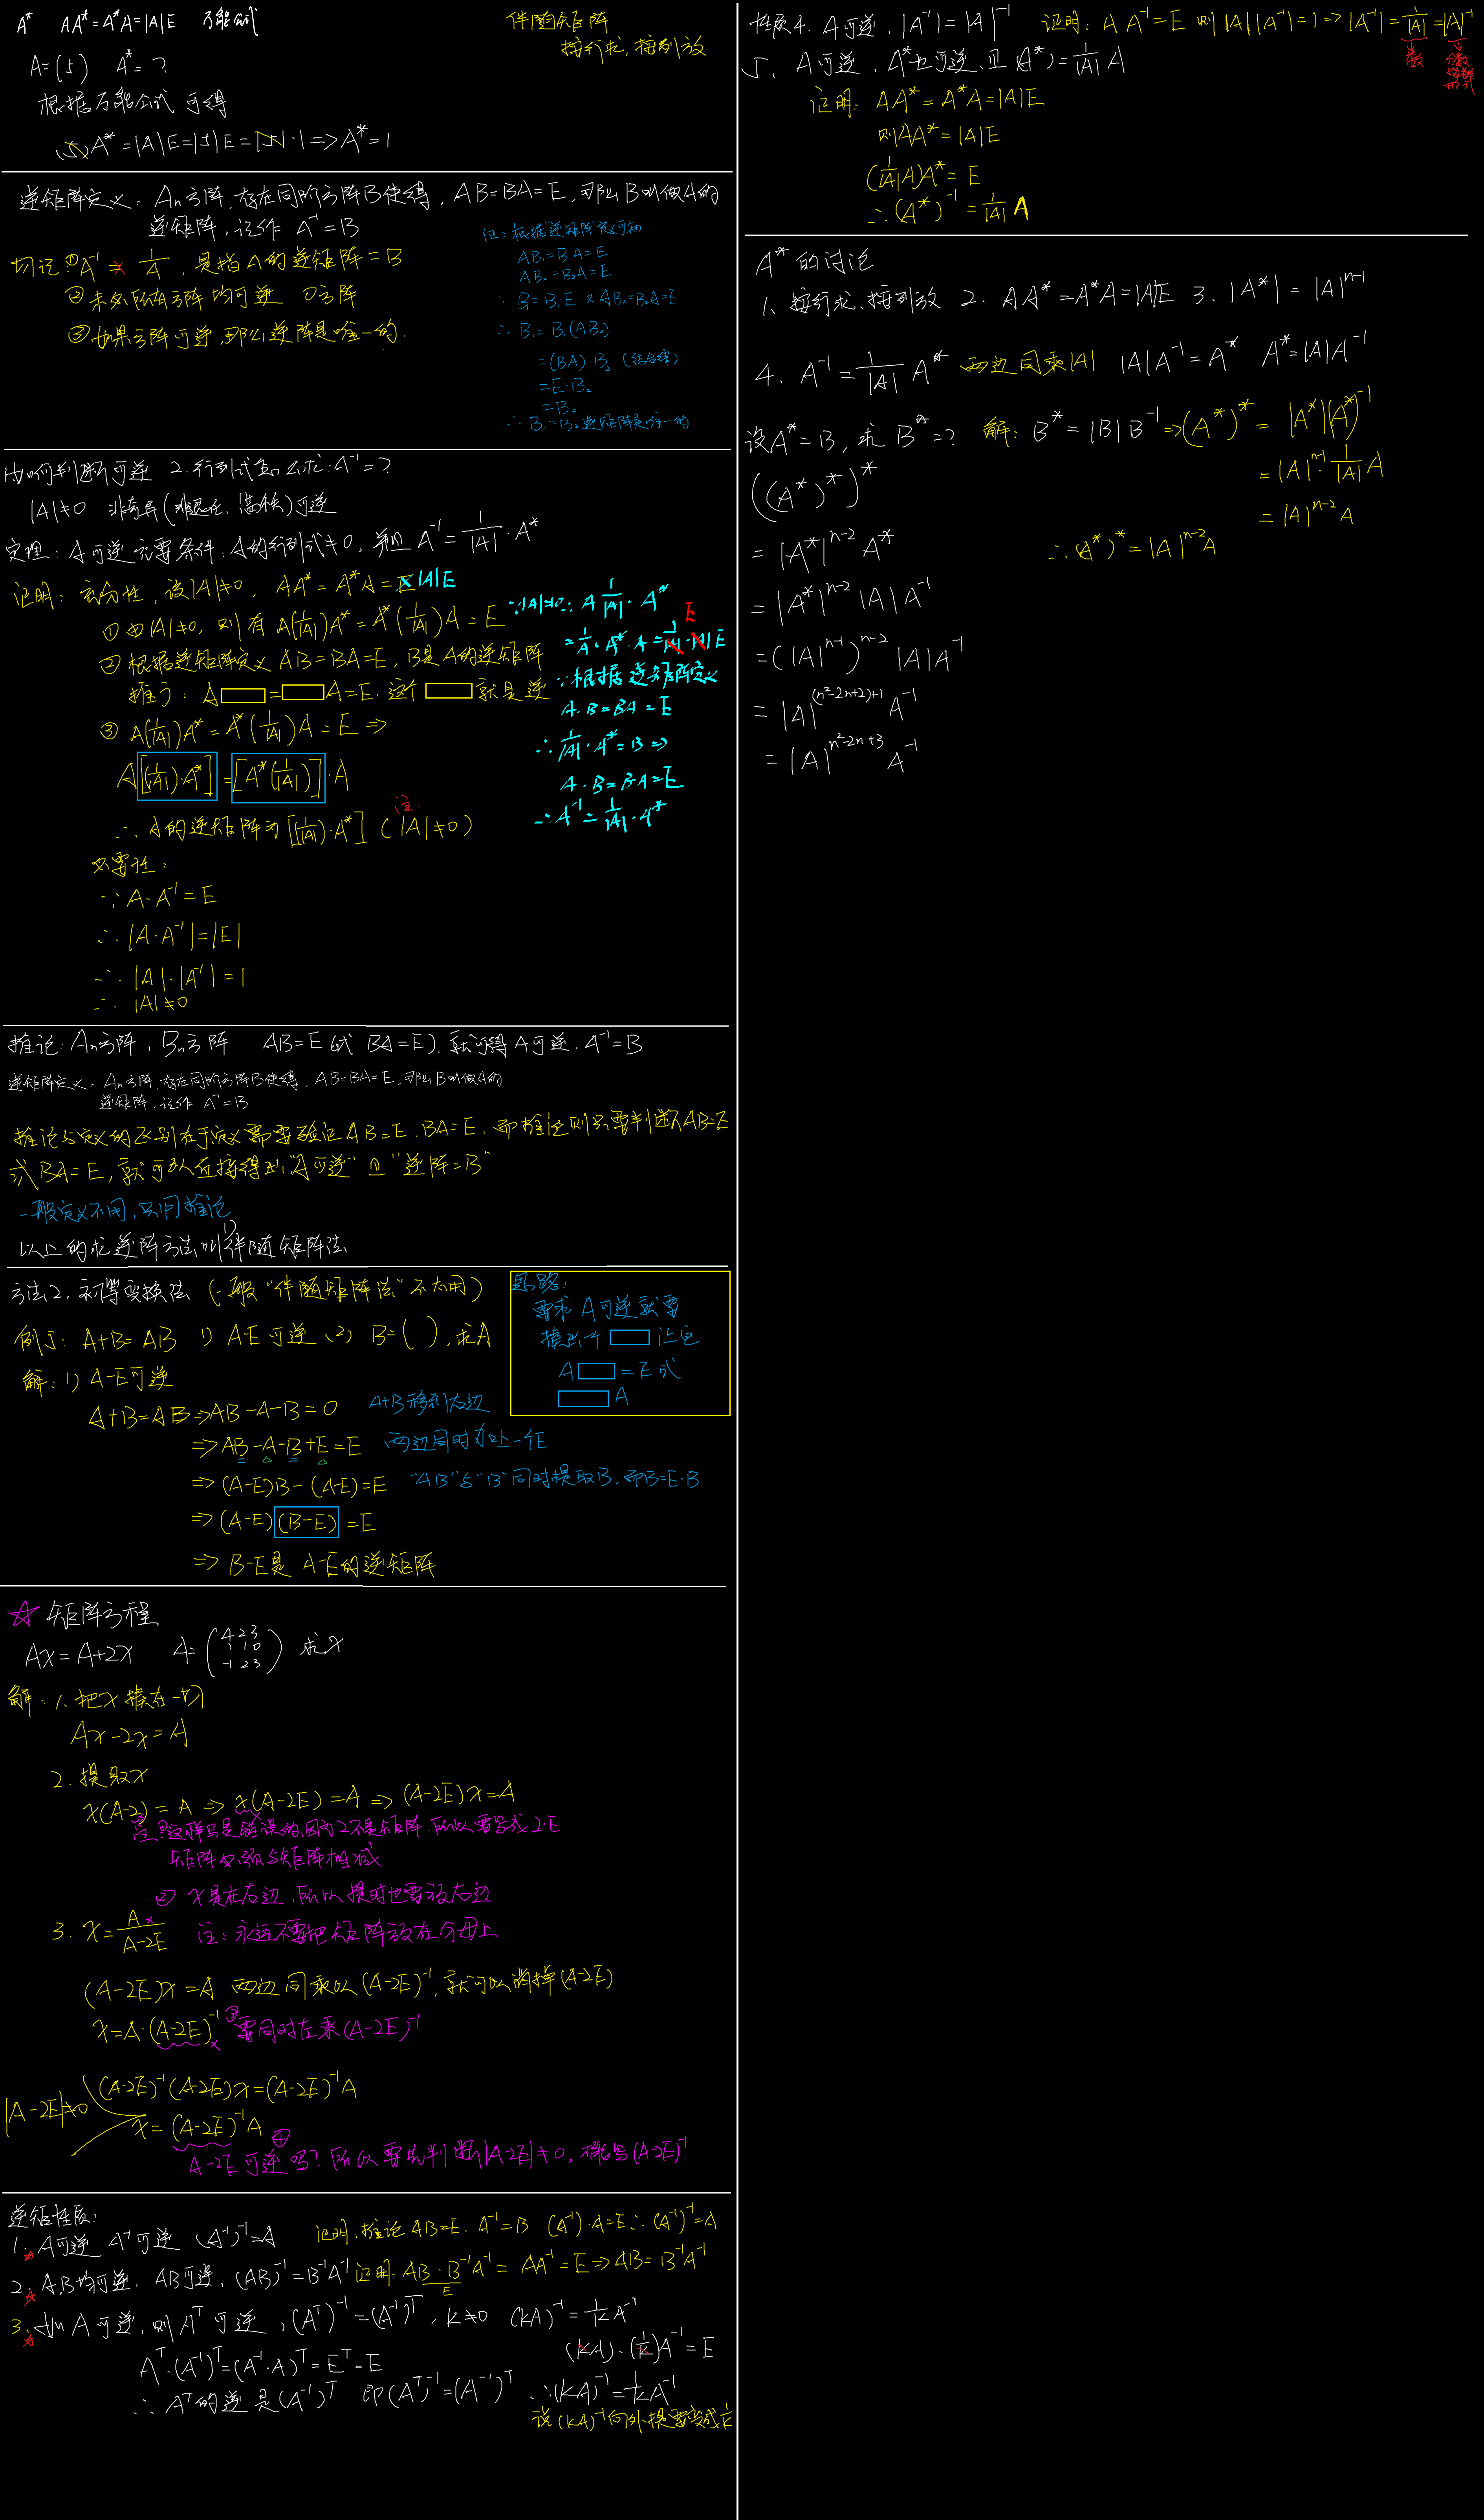 A* AA*=A*A=|A|E 万能公式
伴随矩阵
按行求,按列放
A=(5) A*=?
根据万能公式 可得
(5)A*=|A|E=|5|E=|5|·1=>A*=1
逆矩阵定义: An方阵,存在同阶方阵B使得, AB=BA=E,那么B叫做A的
逆矩阵,记作 A⁻¹=B
切记:①A⁻¹ = 1/A , 是指A的逆矩阵=B
②未必所有方阵均可逆 0方阵
③如果方阵可逆,那么逆阵是唯一的.
证:根据"逆矩阵"定义可知
AB₁=B₁A=E
AB₂=B₂A=E
∵ B₁=B₁·E 又AB₂=B₂A=E
∴ B₁=B₁(AB₂)
=(B₁A)·B₂ (结合律)
=E·B₂
=B₂
∴ B₁=B₂逆矩阵是唯一的
1.如何判断可逆 2.行列式怎么求:A⁻¹=?
|A|≠0 非奇异(非退化,满秩)可逆
定理: A可逆充要条件: A的行列式≠0, 并且 A⁻¹=1/|A|·A*
证明: 充分性, 设|A|≠0, AA*=A*A=|A|E
①由|A|≠0, 则有 A(1/|A|)A*=A*(1/|A|)A=E
②根据逆矩阵定义AB=BA=E, B是A的逆矩阵
推广: A□=□A=E. 这个□就是逆
③ A(1/|A|)A*=A*(1/|A|)A=E =>
A[(1/|A|)·A*]=[A*(1/|A|)]·A
∴ A的逆矩阵为[(1/|A|)·A*] (|A|≠0)
注:
∵|A|≠0∴ A 1/|A|·A*
=1/A·A*·A=1/|A|·|A|E
E
∵根据逆矩阵定义
A·B=BA=E
∴ 1/|A|·A*=B =>
A·B=B·A=E
∴A⁻¹=1/|A|·A*
必要性:
∵A·A⁻¹=E
∴|A·A⁻¹|=|E|
∴|A|·|A⁻¹|=1
∴|A|≠0
推论: An方阵, Bn方阵 AB=E(或 BA=E). 就可得A可逆. A⁻¹=B
逆矩阵定义: An方阵,存在同阶方阵B使得, AB=BA=E,那么B叫做A的
逆矩阵,记作 A⁻¹=B
推论与定义的区别在于定义需要验证AB=E.BA=E. 而推论则只要判断AB=E
或BA=E, 就可以直接得到"A可逆"且"逆阵=B"
一般定义不用,只用推论
以上的求逆阵方法叫1)伴随矩阵法
方法2. 初等变换法 (一般"伴随矩阵法"不大用)
例5: A+B=AB 1) A-E可逆 (2) B=( ),求A
解:1) A-E可逆
A+B=AB=>AB-A-B=0 A+B移到右边
=>AB-A-B+E=E 两边同时加上一个E
=>(A-E)B-(A-E)=E "AB"与"B"同时提取B,而B=E·B
=>(A-E)(B-E)=E
=>B-E是 A-E的逆矩阵.
思路:
要求A可逆就要
□让它
A□=E或
□A
☆ 矩阵方程
AX=A+2X A=(4 2 3
1 1 0
-1 2 3) 求X
解: 1.把X摆在一切
AX-2X=A
2.提取X
X(A-2)=A => X(A-2E)=A => (A-2E)X=A
注①这样写是错误的,因为2不是矩阵.所以要写成2·E
矩阵必须与矩阵相减
② X是在右边,所以提时也要放右边
3. X=A/(A-2E) 注:永远不要把矩阵放在分母上
(A-2E)X=A 两边同乘以(A-2E)⁻¹,就可以消掉(A-2E)
X=A·(A-2E)⁻¹ ③要同时左乘(A-2E)⁻¹
|A-2E|≠0
(A-2E)⁻¹(A-2E)X=(A-2E)⁻¹A
X=(A-2E)⁻¹A
④ A-2E可逆吗?所以要先判断|A-2E|≠0,才能写(A-2E)⁻¹
逆矩性质:
1. A可逆 A⁻¹可逆 (A⁻¹)⁻¹=A 证明:推论AB=E. A⁻¹=B (A⁻¹)·A=E∴(A⁻¹)⁻¹=A
2. A,B均可逆. AB可逆. (AB)⁻¹=B⁻¹A⁻¹ 证明:AB·B⁻¹A⁻¹=AA⁻¹=E=>AB=B⁻¹A⁻¹
E
3. 如A可逆,则Aᵀ可逆,(Aᵀ)⁻¹=(A⁻¹)ᵀ, K≠0 (KA)⁻¹=1/K A⁻¹
Aᵀ·(A⁻¹)ᵀ=(A⁻¹·A)ᵀ=Eᵀ=E
(KA)·(1/K)A⁻¹=E
∴ Aᵀ的逆是(A⁻¹)ᵀ 即(Aᵀ)⁻¹=(A⁻¹)ᵀ ∴(KA)⁻¹=1/K A⁻¹
说(KA)⁻¹向外提要变成1/K
性质4. A可逆.|A⁻¹|=|A|⁻¹ 证明: AA⁻¹=E 则|A||A⁻¹|=1=>|A⁻¹|=1/|A|=|A|⁻¹
5. A可逆. A*也可逆.且(A*)=1/|A| A
证明: AA*=A*A=|A|E
则AA*=|A|E
(1/|A| A)A*=E
∴(A*)⁻¹=1/|A| A
A*的讨论
1. 按行求,按列放 2. AA*=A*A=|A|E 3. |A*|=|A|ⁿ⁻¹
4. A⁻¹=1/|A| A* 两边同乘|A| |A|A⁻¹=A* A*=|A|A⁻¹
设A*=B, 求 B*=? 解: B*=|B|B⁻¹=>(A*)*=|A*|(A*)⁻¹
=|A|ⁿ⁻¹·1/|A|·A
=|A|ⁿ⁻²A
∴(A*)*=|A|ⁿ⁻²A
((A*)*)*
=|A*|ⁿ⁻²A*
=|A*|ⁿ⁻²|A|A⁻¹
=(|A|ⁿ⁻¹)ⁿ⁻²|A|A⁻¹
=|A|^(n²-2n+2)+1 A⁻¹
=|A|^n²-2n+3 A⁻¹